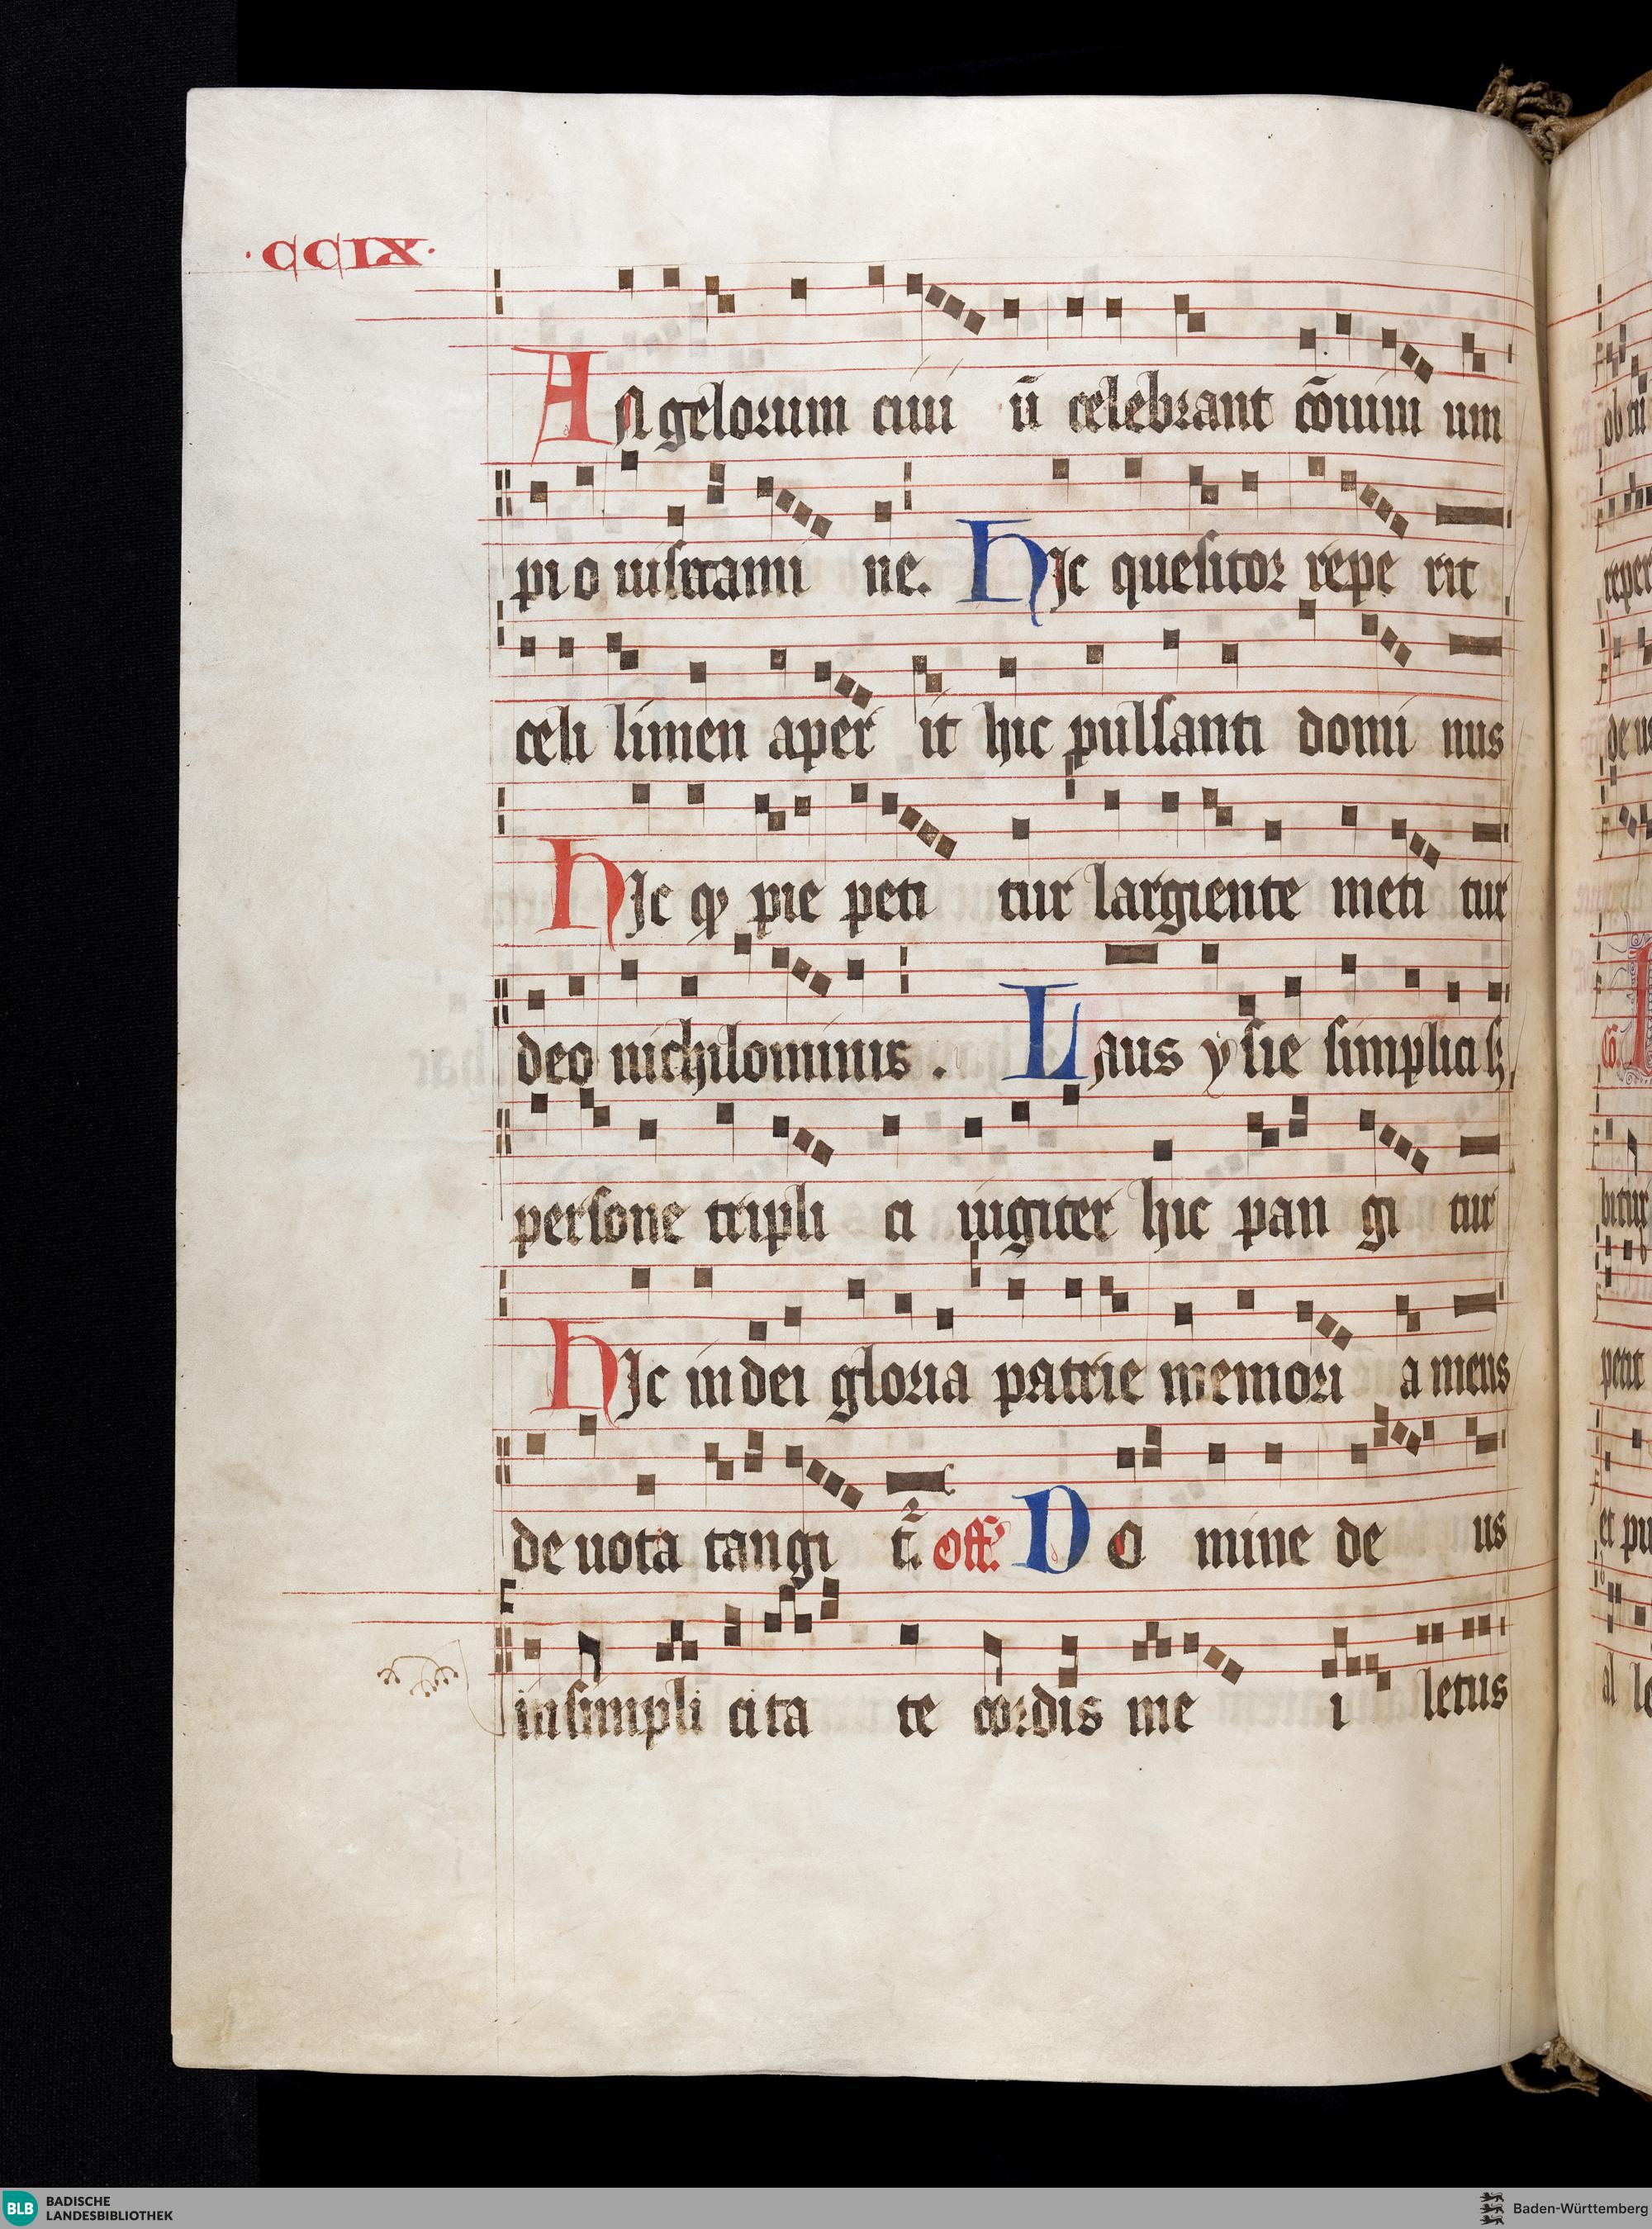 ·CCIX·
Angelorum ciui ū celebrant cōuiui um
pio uisitami ne. Hic quesitor repe rit
celi limen aper it hic pulsanti domi nus
Hic qƺ pie peti tur largiente meti tur
deo nichilominus . Laus ysie simplici hˢ
persone tripli ci iugiter hic pan gi tur
Hic in dei gloria patrie memori a mens
deuota tangi t². off. Do mine de us
in simpli cita te cordis me i letus
BLB BADISCHE
LANDESBIBLIOTHEK
Baden-Württemberg